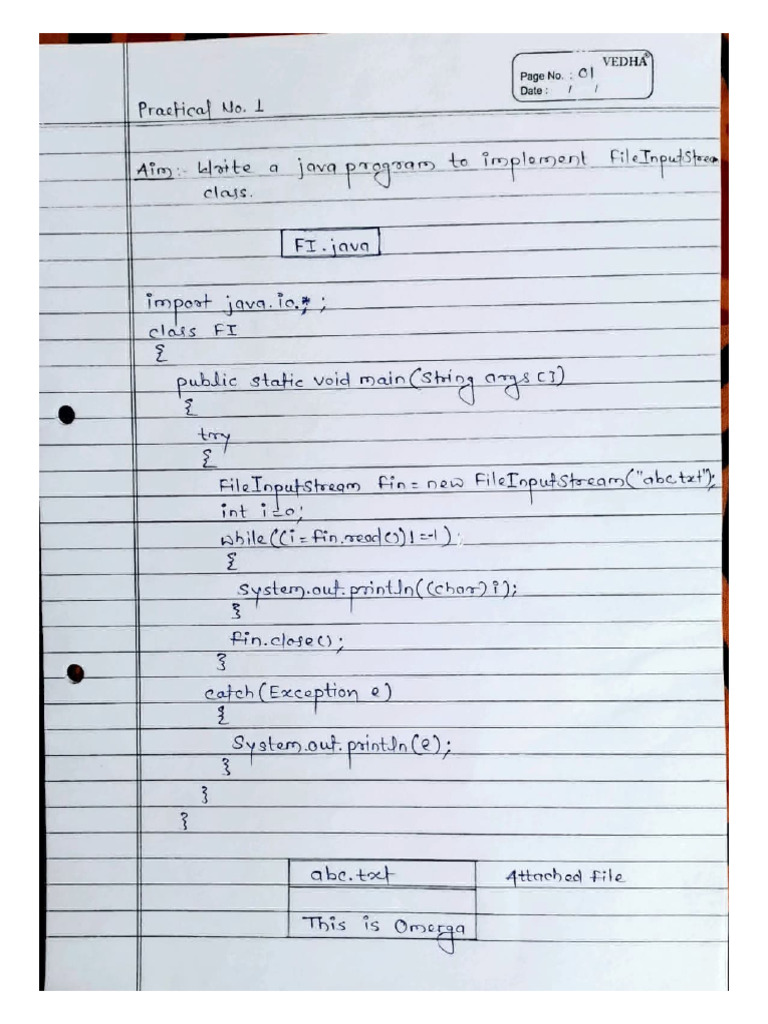 VEDHA
Page No. : 01
Date : / /
Practical No. 1
Aim:- Write a java program to implement FileInputStream
class.
FI.java
import java.io.*;
class FI
{
public static void main(String args[])
{
try
{
FileInputStream fin = new FileInputStream("abc.txt");
int i=0;
while((i=fin.read())!=-1);
{
System.out.println((char)i);
}
fin.close();
}
catch(Exception e)
{
System.out.println(e);
}
}
}
abc.txt Attached file
This is Omerga